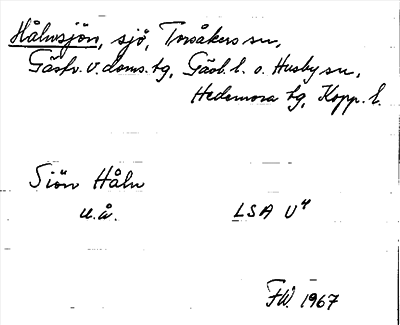 Hålnsjön, sjö, Torsåkers sn,
Gästr. v. doms. tg, Gävl. l. o. Husby sn,
Hedemora tg, Kopp. l.
Siön Håln
u.å.
LSA U4
FW. 1967